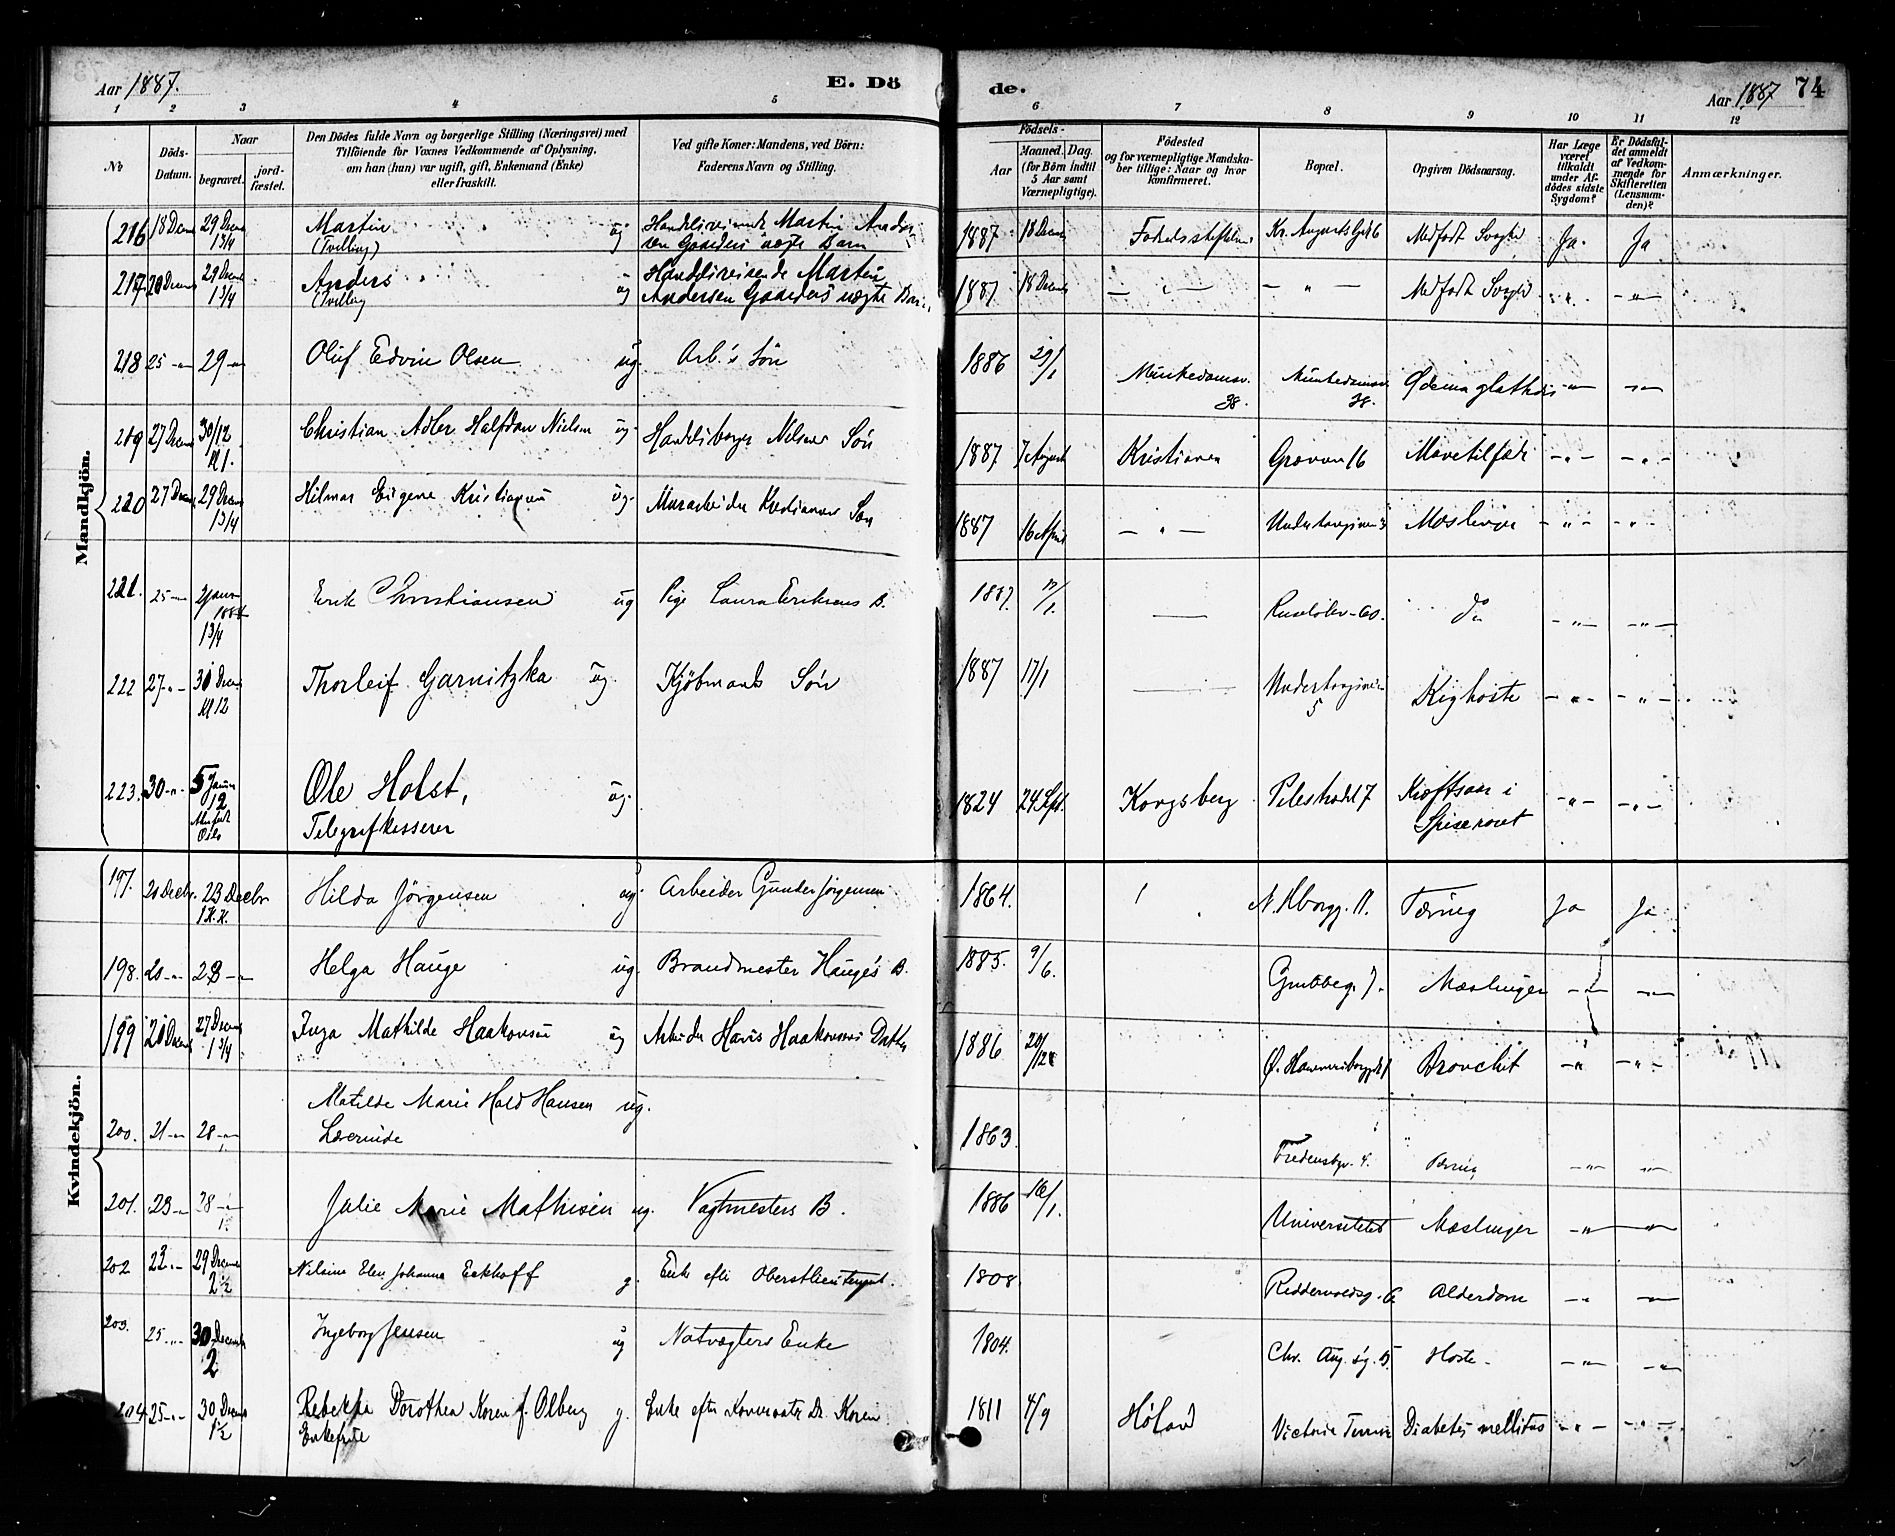 Aar 1887.
E. Dö
de.
Aar 1887
74
1 2 3 4 5 6 7 8 9 10 11 12
No
Döds-Datum.
Naar
begravet.
jord-fæstet.
Den Dödes fulde Navn og borgerlige Stilling (Næringsvei) med
Tilföiende for Voxnes Vedkommende af Oplysning,
om han (hun) var ugift, gift, Enkemand (Enke)
eller fraskilt.
Ved gifte Koner: Mandens, ved Börn:
Faderens Navn og Stilling.
Födsels-
Aar
Maaned. Dag.
(for Börn indtil
5 Aar samt
Værnepligtige).
Födested
og for værnepligtige Mandska-
ber tillige: Naar og hvor
konfirmeret.
Bopæl.
Opgiven Dödsaarsag.
Har Læge
været
tilkaldt
under Af-
dödes sidste
Sygdom?
Er Dödsfal-
det anmeldt
af Vedkom-
mende for
Skifteretten
(Lensman-
den)?
Anmærkninger.
Mandkjön.
216 18 Decem 29 Decem 13/4 Martin ug Handelsreisende Martin Ander 1887 18 Decem Fødselsstiftelsen Kr. Augustsgd 6 Medfødt Svaghed Ja. Ja
(Tvilling) sen Gaarders ægte Barn
217 20 Decem 29 Decem 13/4 Anders ug Handelsreisende Martin 1887 18 Decem — " — — " — Medfødt Svaghed " — " —
(Tvilling Andersen Gaarders ægte Barn
218 25 — " 29 — " Oluf Edvin Olsen ug. Arb.'s Søn 1886 29/1 Munkedamsv. 38. Munkedamsv. 38. Oedema glottidis — " — — " —
219 27 Decem 30/12 Kl 1. Christian Adler Halfdan Nielsen ug Handelsborger Nilsens Søn 1887 7 August Kristiania Grønven 16 Mavetilfælde — " — — " —
220 27 Decem 29 Decem 13/4 Hilmar Eugene Kristiansen ug. Murarbeider Kristiansens Søn 1887 16 April — " — Underhaugsveien 3 Mæslinger — " — — " —
221. 25 — 2 Janu 1888 13/4 Erik Christiansen ug Pige Laura Eriksens B. 1887. 17/1. — Ruseløkv. 60. do — " — — " —
222 27 — " — 30 Decem Kl 12 Thorleif Garnitzka ug. Kjøbmands Søn 1887 17/1 — Underhaugsveien 5 Kighoste — " — — " —
223. 30 — " — 5 Janua 12 Oslo Ole Holst, ug. 1824 24 Sept. Kongsberg Pilestrædet 7 Kræftsaar i — " — — " —
Telegrafkasserer Spiserøret
Kvindekjön.
197. 20 Decbr. 23 Decbr 1 K.K. Hilda Jörgensen ug. Arbeider Gunder Jörgensen 1864. Tæring Ja Ja
198. 20 — " 23 — " Helga Hauge ug. Brandmester Hauge's B. 1885. 9/6. Grubbeg. 7. Mæslinger — " — — " —
199 20 Decem 27 Decem 13/4 Inga Mathilde Haakonsen ug Arbeider Hans Haakonsens Datter 1886 20/12 Ø. Hammersborggd 1 Bronchit — " — " —
200. 21 — " 28 — " Matilde Marie Hald Hansen ug. 1863. Fredensbgv. 4. Tæring — " — — " —
Lærerinde
201. 23 — " 28 — " 1. Julie Marie Mathisen ug. Vagtmesters B. 1886 16/1. Universitetet Mæslinger — " — — " —
202 22 — 29 Decem 2 1/2 Nilsine Elen Johanne Eckhoff g. Enke efter Oberstlieutenant. 1808. Riddervoldsg. 6 Alderdom — " — " —
203. 25 — " — 30 Decem 2 Ingeborg Jensen ug Natvægters Enke 1804. Chr. Aug.s g. 15. Hoste — " — — " —
204 25 — " — 30 Decem 1 1/2 Rebekka Dorothea Koren f. Olberg g. Enke efter Dr. Koren 1811 4/9 Høland Victoria Terrasse Diabetes mellitus — " — — " —
Enkefrue